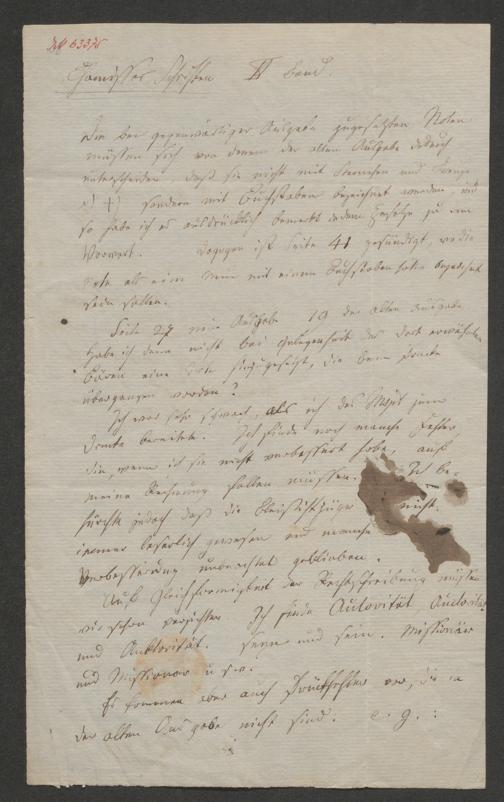 Chamissos Schriften IV Band.
Die bei gegenwärtiger Ausgabe zugesetzten Noten
müssen sich von denen der alten Ausgabe dadurch
unterscheiden, daß sie nicht mit Sternchen und Kreuze
*) †) sondern mit Buchstaben bezeichnet werden, und
so habe ich es ausdrücklich bemerkt in dem Zusatze zu dem
Vorwort. Dagegen ist Seite 41 gesündigt, wo die
Note als eine neue mit einem Buchstaben hätte bezeichnet
sein sollen.
Seite 27 neue Ausgabe 19 der alten Ausgabe
habe ich denn nicht bei Gelegenheit des dort erwähnten
Bären eine Note hinzugefügt, die beim Drucke
übergangen worden?
Ich war sehr schwach, als ich das Mspt zum
Drucke bereitete. Ich finde noch manche Fehler
die, wenn ich sie nicht verbessert habe, auf
meine Rechnung fallen müssen. Ich be-
fürchte jedoch daß die Bleistiftzüge nicht
immer leserlich gewesen und manche
Verbesserung unbeachtet geblieben.
Auf Gleichförmigkeit der Rechtschreibung müssen
wir schon verzichten. Ich finde Autorität Auctorität
und Auktorität. seyn und sein. Missionär
und Missionar u. s. w.
Es kommen aber auch Druckfehler vor, die in
der alten Ausgabe nicht sind. e. g. :